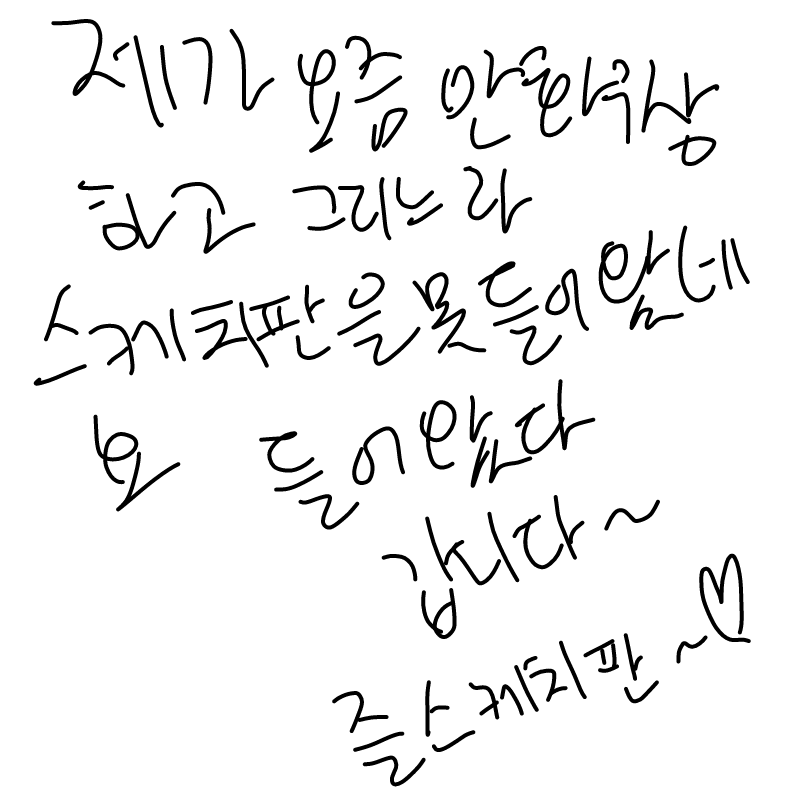 제가 요즘 만화구상
하고 그리느라
스케치판을 못 들어왔네
요 들어왔다
갑니다~
즐스케치판~♡